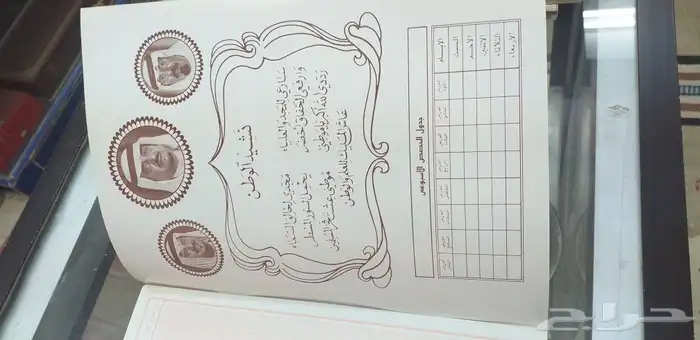 نشيد الوطن
سارعي للمجد والعلياء مجدي لخالق السماء
وارفعي الخفاق أخضر يحمل النور المسطر
رددي الله أكبر يا موطني موطني عشت فخر المسلمين
عاش المليك للعلم والوطن
جدول الحصص الأسبوعي
الأيام
السبت
الأحد
الاثنين
الثلاثاء
الأربعاء
حراج